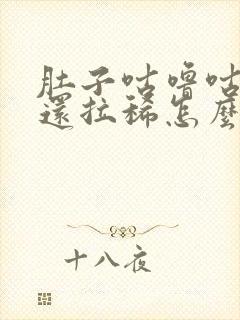 肚子咕嚕咕
還拉稀怎麼
十八夜